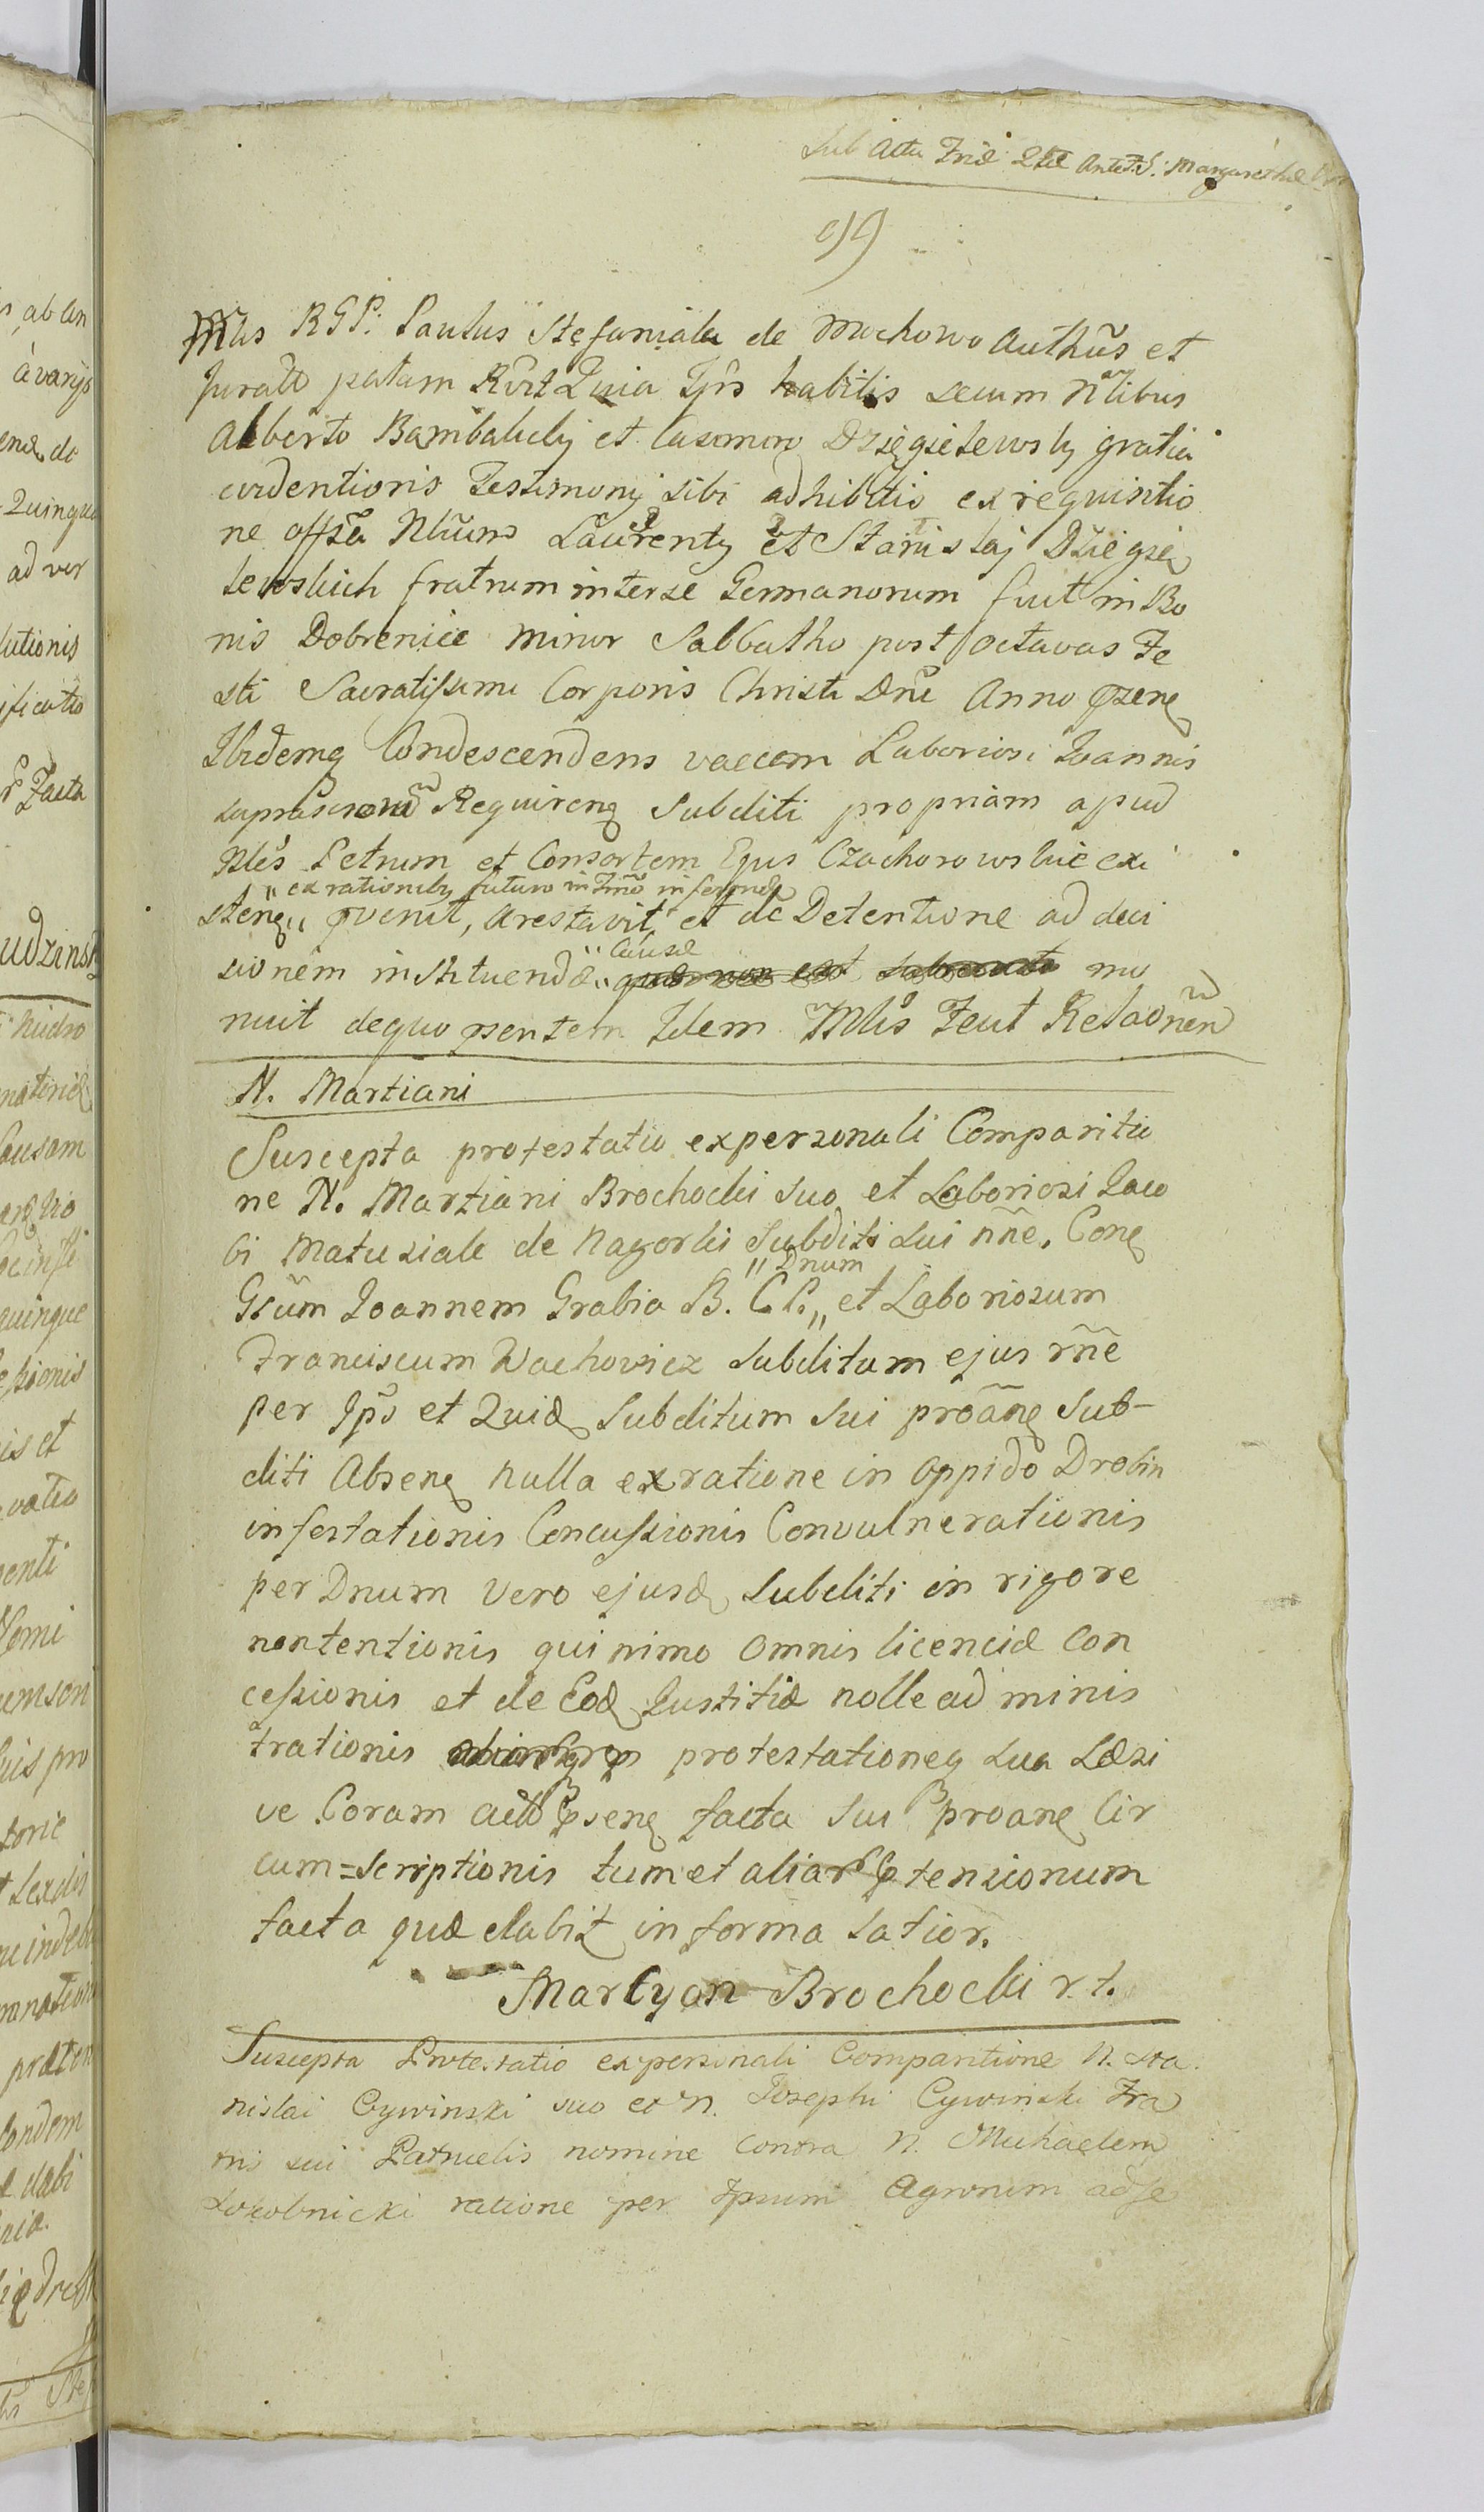 Sub Actu Friæ 2dæ Ante F. S: Margarethæ
Mlis RGP: Paulus Stefaniak de Mochowo Authũs et
Juratt palam Rvit Quia Ips habitis secum Nlibus
Alberto Bambalicky et Casimiro Dzięgielewsky gratia
evidentioris Testimony sibi adhibitis ex requisitio
ne offsa Nlium Laurenty et Stanislaj Dzięgie
lewskich fratrum inter se Germanorum fuit in Bo
nis Dobrenice minor Sabbatho post Octavas Fe
sti Sacratissimi Corporis Christi Dni Anno
Ibidemq Condescendens vaccam Laboriosi Joannis
Requirenq Subditi propriam apud
Nles Petrum et Consortem Ejus Czachorowskie exi
" ex rationibq futuro in Tmno inferendq
stenq" pvenit, Arestavit, et de Detentione ad deci
" Causæ
sionem instituendæ" quæ non est mo
nuit dequo psentem Idem Mlis Fecit Relaonem
N. Martiani
Suscepta protestatio ex personali Comparitio
ne N. Martiani Brochocki suo et Laboriosi Jaco
bi Matusiak de Nagorki Subditi sui nñe, Conq
" Dnum
Gsum Joannem Grabia B. C. P. " et Laboriosum
Franciscum Wachowicz subditum ejus rñe
per Ips et Quid Subditum sui proanq Sub-
diti Absenq nulla ex ratione in oppido Drobin
infestationis Concussionis Convulnerationis
per Dnum vero ejusd Subditi in rigore
nontentionis quinimo omnis licenciæ con
cessionis et de Eod Justitiæ nolle adminis
trationis protestationeq sua Læsi
ve Coram actis psenq facta sui proanq Cir
cum=scriptionis tum et aliar ptensionum
facta quæ dabit in forma latior.
Martyan Brochocki r.t.
Suscepta Protestatio ex personali Comparitione N. Sta
nislai Cywinski suo et N. Josephi Cywinski Fra
tris sui Patruelis nomine Contra N. Michaelem
Sokolnicki ratione per Ipsum Agrorum ad se